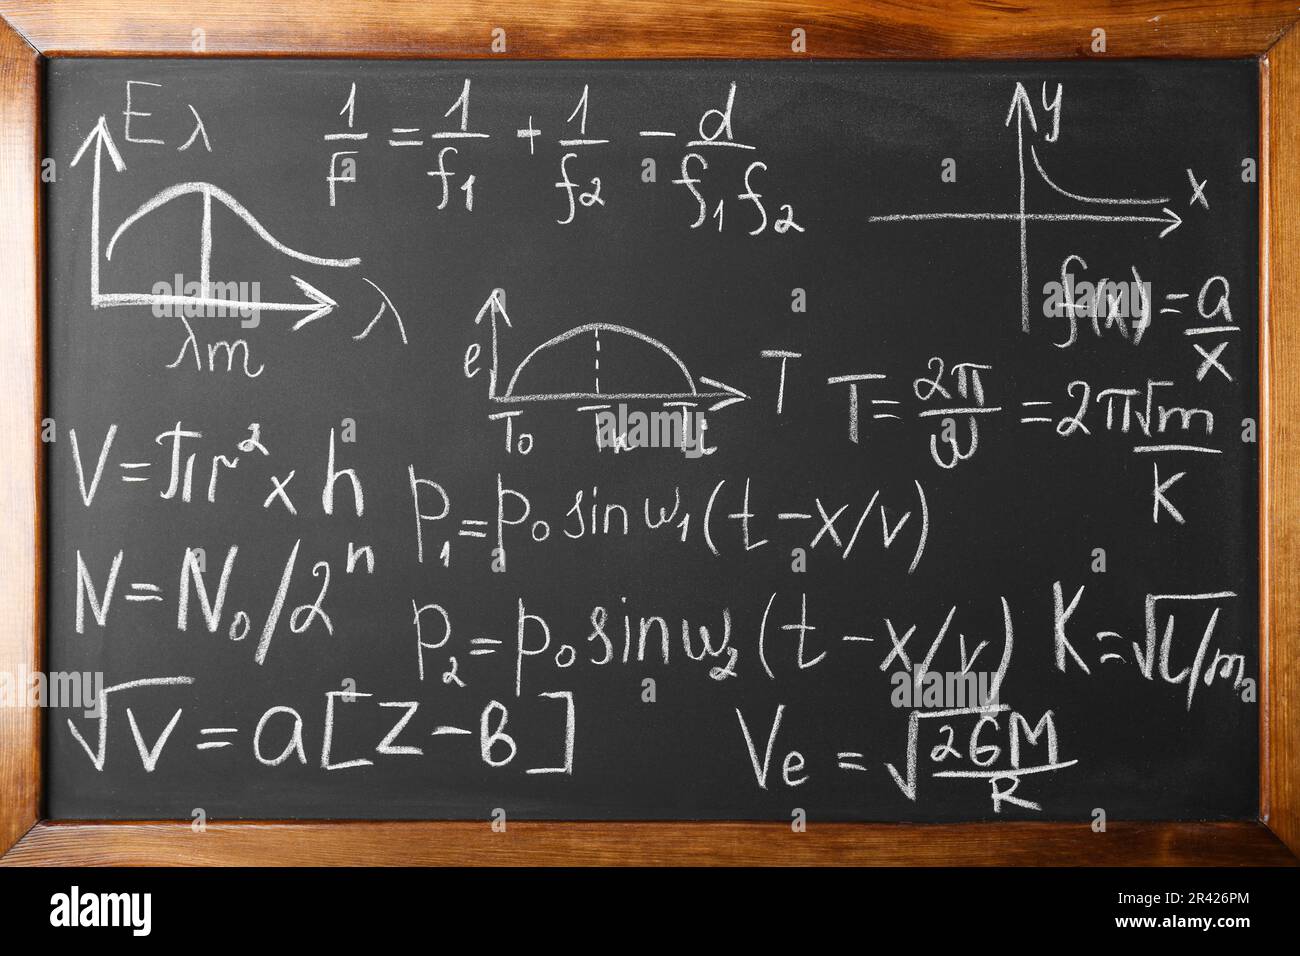 Eλ
1/F = 1/f1 + 1/f2 - d/f1f2
y
x
f(x) = a/x
λ
λm
e
T
To Tk Ti
T = 2π/ω = 2π√m/K
V = πr² x h
P1 = Po sin ω1 (t - x/v)
N = No/2ⁿ
P2 = Po sin ω2 (t - x/v)
K = √l/m
√V = a[Z - B]
Ve = √2GM/R
alamy
Image ID: 2R426PM
www.alamy.com